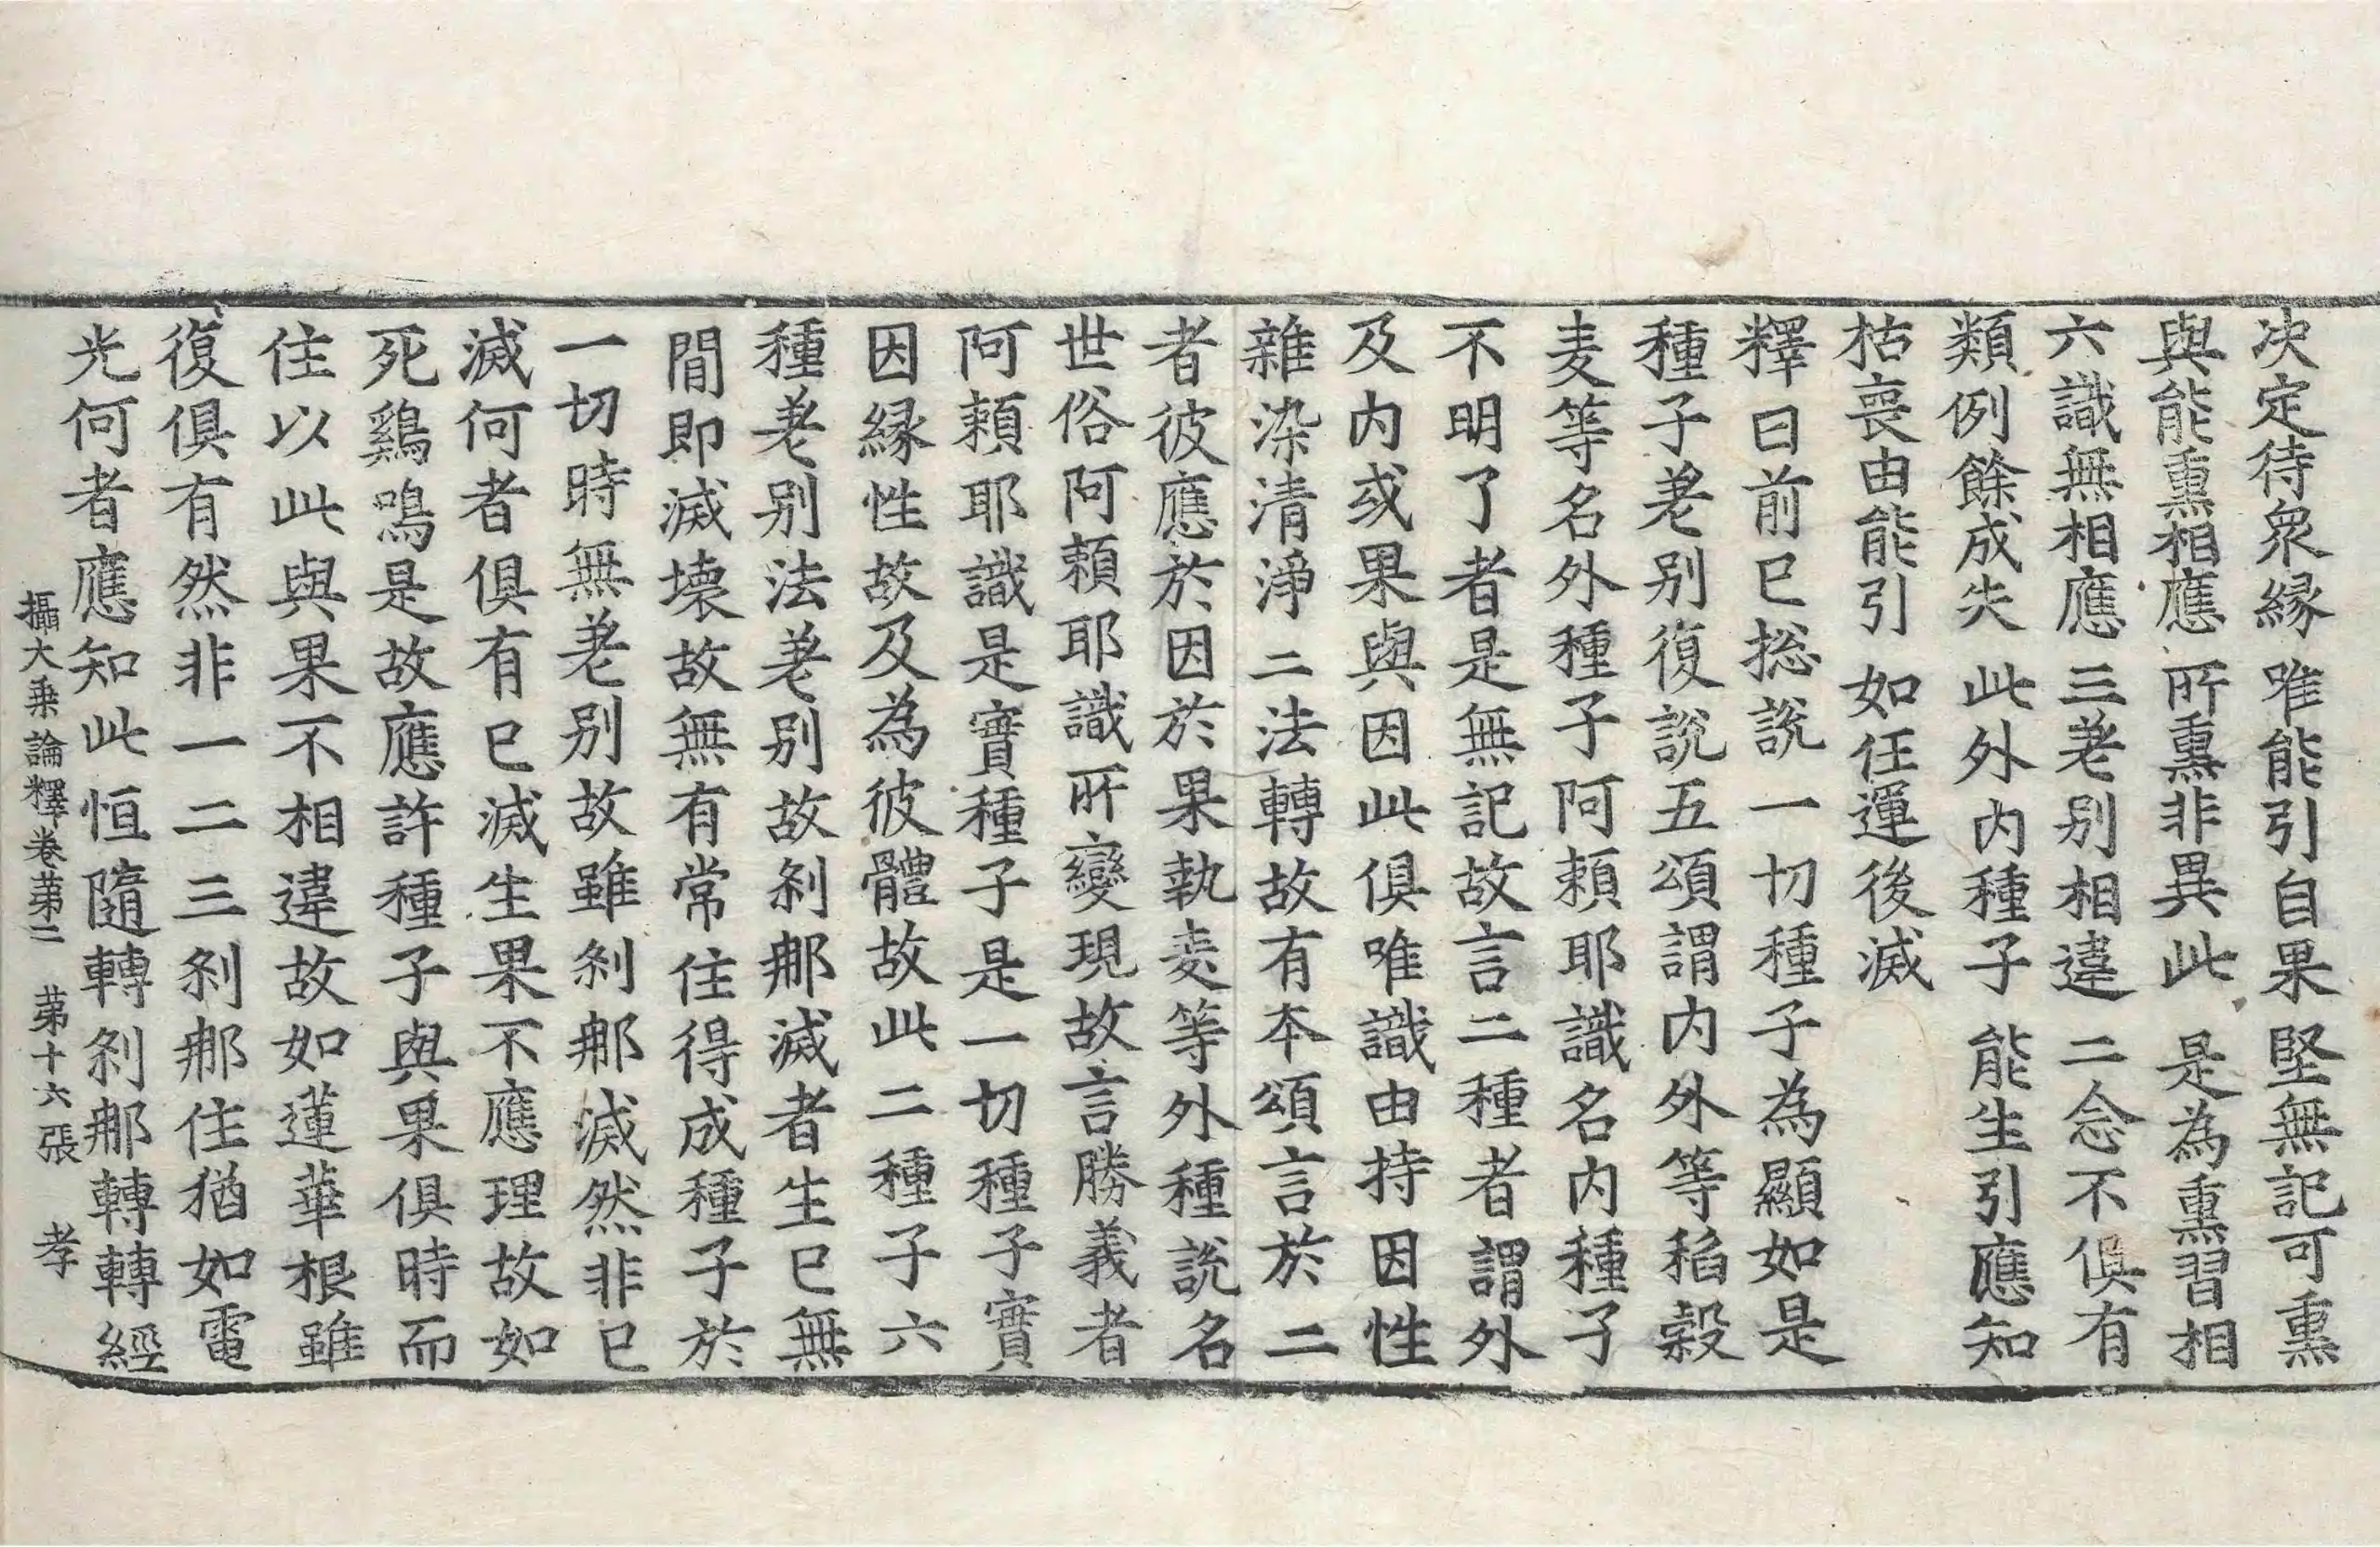 决定待眾縁　唯能引自果　堅無記可熏
與能熏相應　所熏非異此　是為熏習相
六識無相應　三差别相違　二念不俱有
類例餘成失　此外内種子　能生引應知
枯喪由能引　如任運後滅
釋曰前已捴說一切種子為顯如是
種子差别復說五頌謂内外等稻榖
麦等名外種子阿頼耶識名内種子
不明了者是無記故言二種者謂外
及内或果與因此俱唯識由持因性
雜染清淨二法轉故有本頌言於二
者彼應於因於果執麦等外種說名
世俗阿頼耶識所變現故言勝義者
阿頼耶識是實種子是一切種子實
因縁性故及為彼體故此二種子六
種差别法差别故刹那滅者生已無
間即滅壊故無有常住得成種子於
一切時無差别故雖刹那滅然非已
滅何者俱有已滅生果不應理故如
死鷄鳴是故應許種子與果俱時而
住以此與果不相違故如蓮華根雖
復俱有然非一二三刹那住猶如電
光何者應知此恒隨轉刹那轉轉經
攝大乗論釋卷苐二　苐十六張　孝